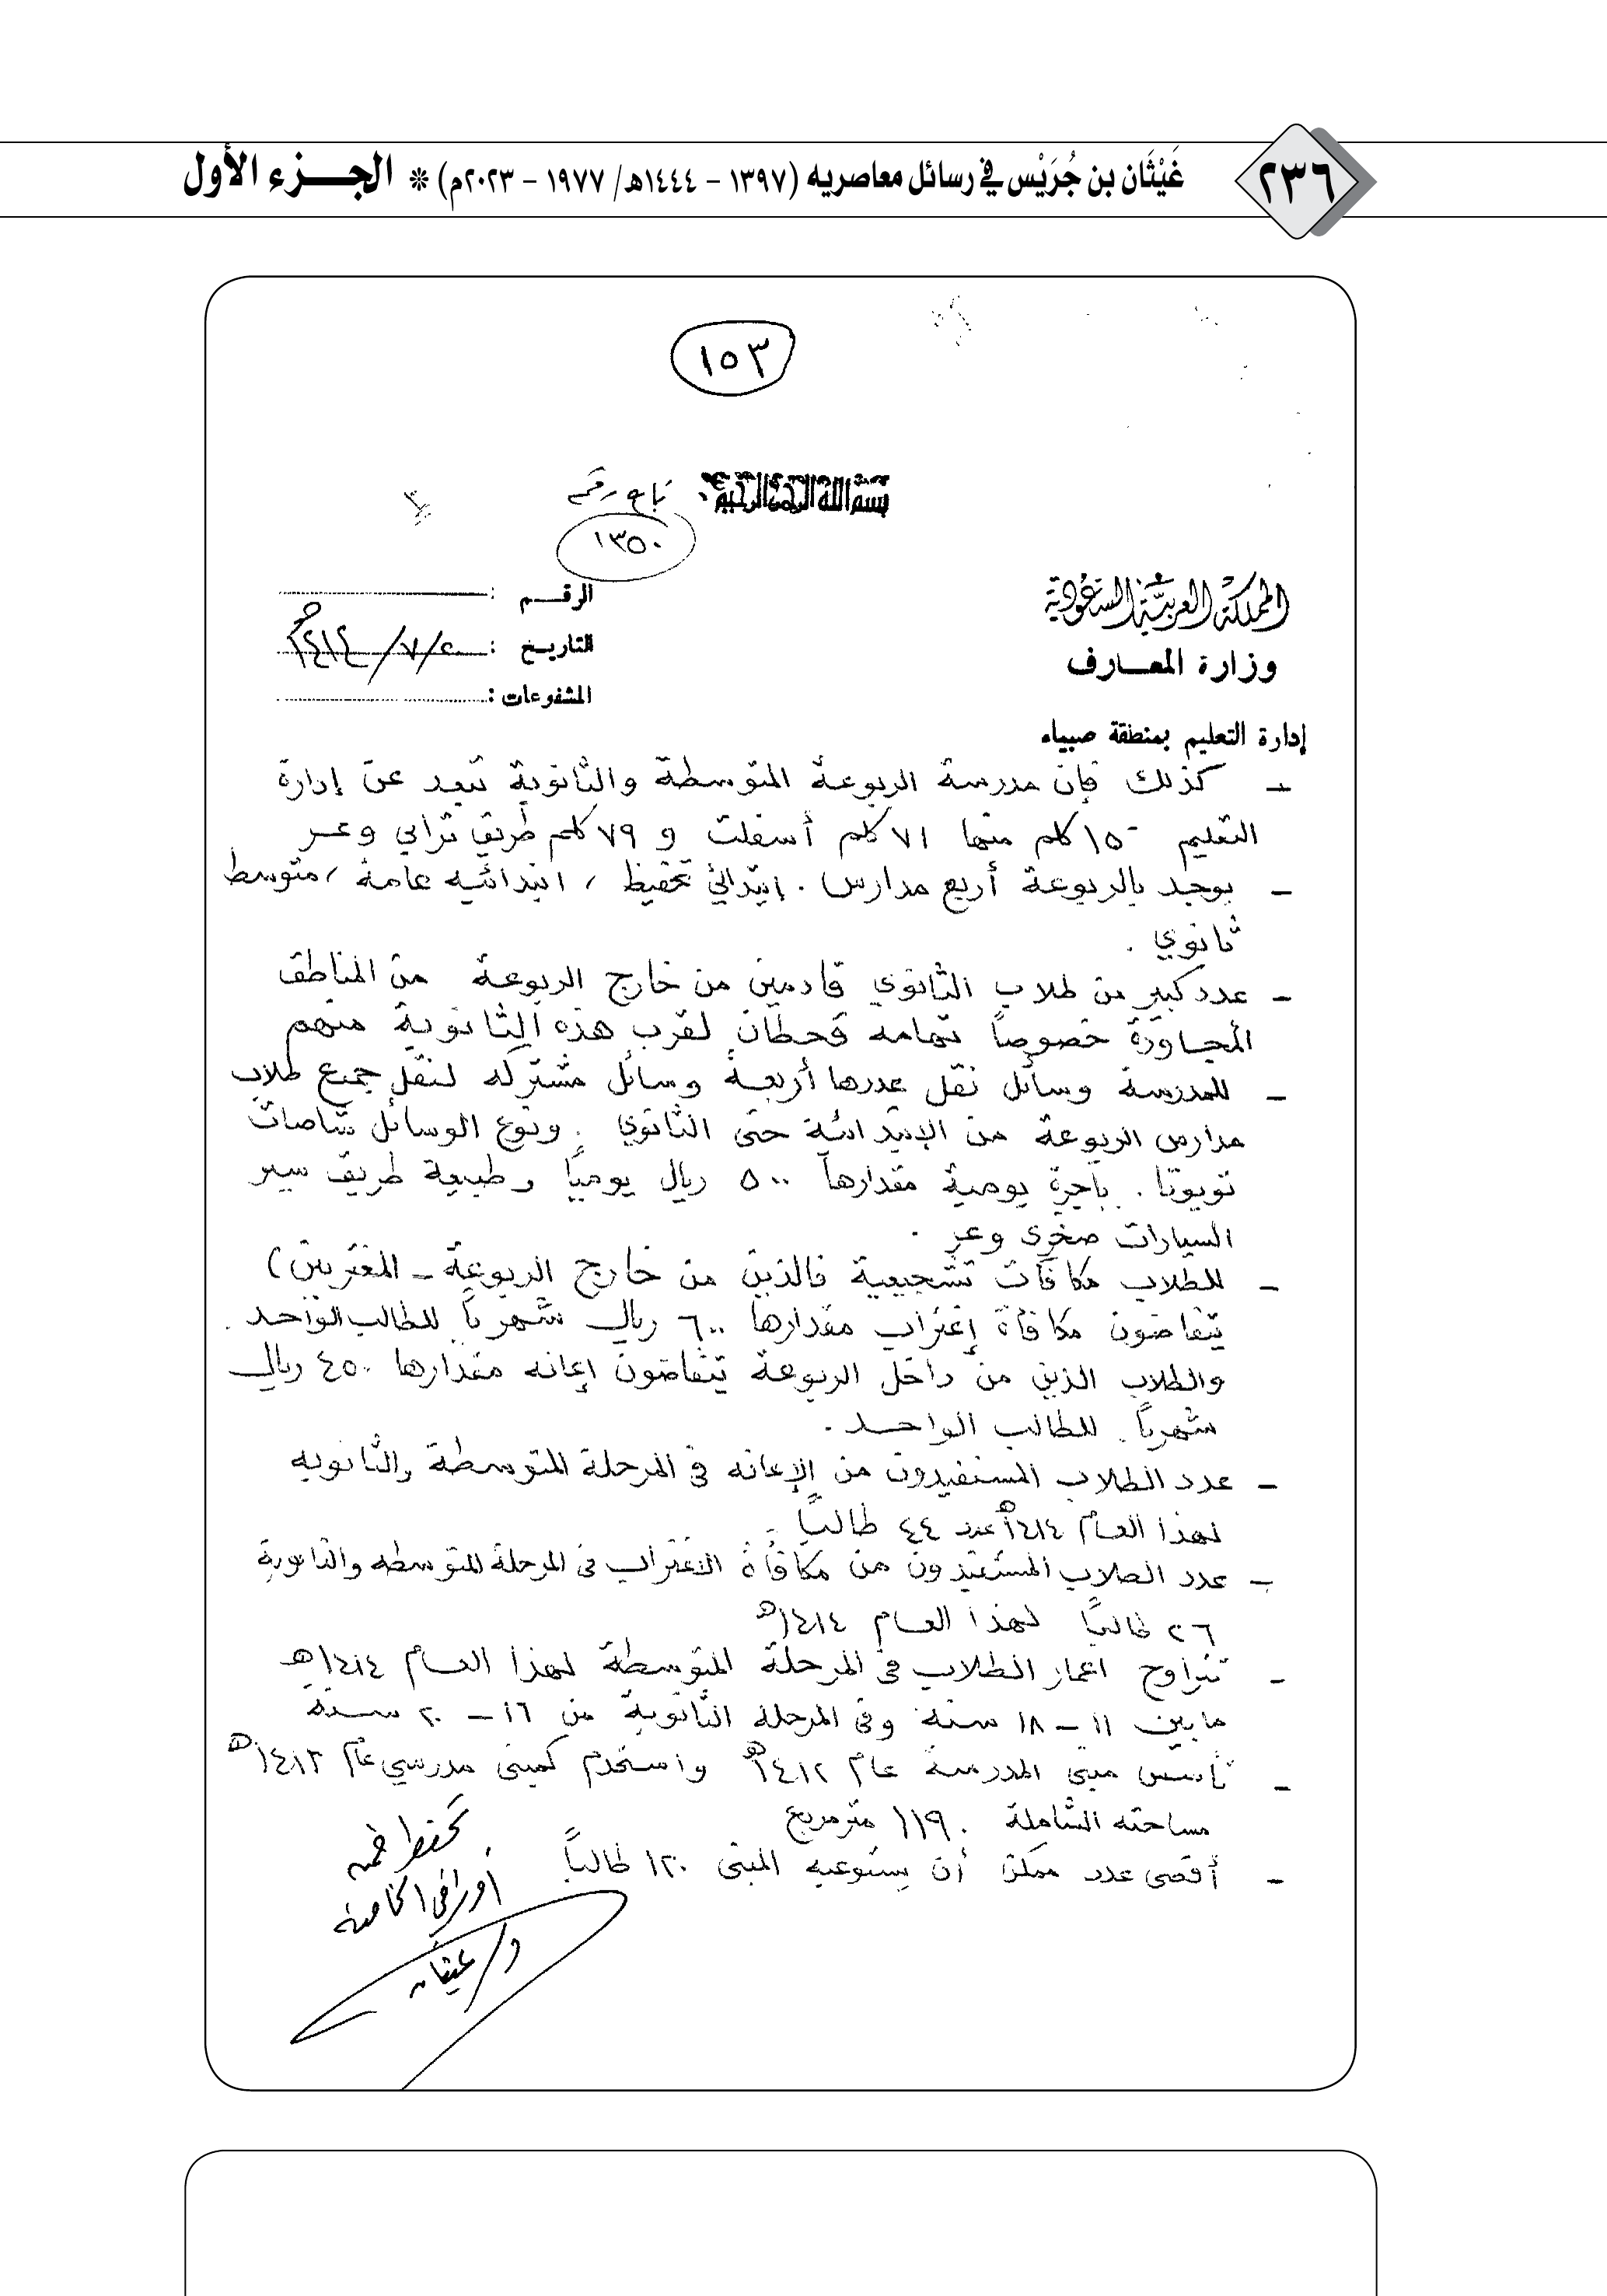 ٢٣٦
غَيْثَان بن جُرَيْس في رسائل معاصريه (١٣٩٧ - ١٤٤٤هـ/ ١٩٧٧ - ٢٠٢٣م) * الجـــزء الأول
١٥٣
بسم الله الرحمن الرحيم
تابع رقم
١٣٥٠
المملكة العربية السعودية
وزارة المعـارف
إدارة التعليم بمنطقة صبياء
الرقـــم :
التاريـخ : ٢ / ٧ / ١٤١٤هـ
المشفوعات :
- كذلك فإن مدرسة الربوعة المتوسطة والثانوية تبعد عن إدارة
التعليم ١٥٠ كلم منها ٧١ كلم أسفلت و ٧٩ كلم طريق ترابي وعر
- يوجد بالربوعة أربع مدارس . ابتدائي تحفيظ ، ابتدائيه عامة ، متوسط
ثانوي .
- عدد كبير من طلاب الثانوي قادمين من خارج الربوعة من المناطق
المجاورة خصوصاً تهامه قحطان لقرب هذه الثانوية منهم
- للمدرسة وسائل نقل عددها أربعة وسائل مشتركه لنقل جميع طلاب
مدارس الربوعة من الإبتدائية حتى الثانوي . ونوع الوسائل شاصات
تويوتا . بإجرة يومية مقدارها ٥٠٠ ريال يومياً وطبيعة طريق سير
السيارات صخري وعر .
- للطلاب مكافآت تشجيعية فالذين من خارج الربوعة - المغتربين )
يتقاضون مكافأة إغتراب مقدارها ٦٠٠ ريال شهرياً للطالب الواحد .
والطلاب الذين من داخل الربوعة يتقاضون إعانه مقدارها ٤٥٠ ريال
شهرياً . للطالب الواحد .
- عدد الطلاب المستفيدون من الإعانه في المرحلة المتوسطة والثانويه
لهذا العام ١٤١٤هـ عدد ٤٤ طالباً .
- عدد الطلاب المستفيدون من مكافأة الاغتراب في المرحلة المتوسطه والثانوية
٢٦ طالباً لهذا العام ١٤١٤هـ
- تتراوح اعمار الطلاب في المرحلة المتوسطة لهذا العام ١٤١٤هـ
ما بين ١١ - ١٨ سنة وفي المرحلة الثانوية من ١٦ - ٢٠ سنة
- تأسس مبنى المدرسة عام ١٤١٢هـ واستخدم كمبنى مدرسي عام ١٤١٣هـ
مساحته الشاملة ١١٩٠ مترمربع
- أقصى عدد ممكن أن يستوعبه المبنى ١٢٠ طالباً
تحفظ ضمن
أوراقي الخاصة
د/ غيثان